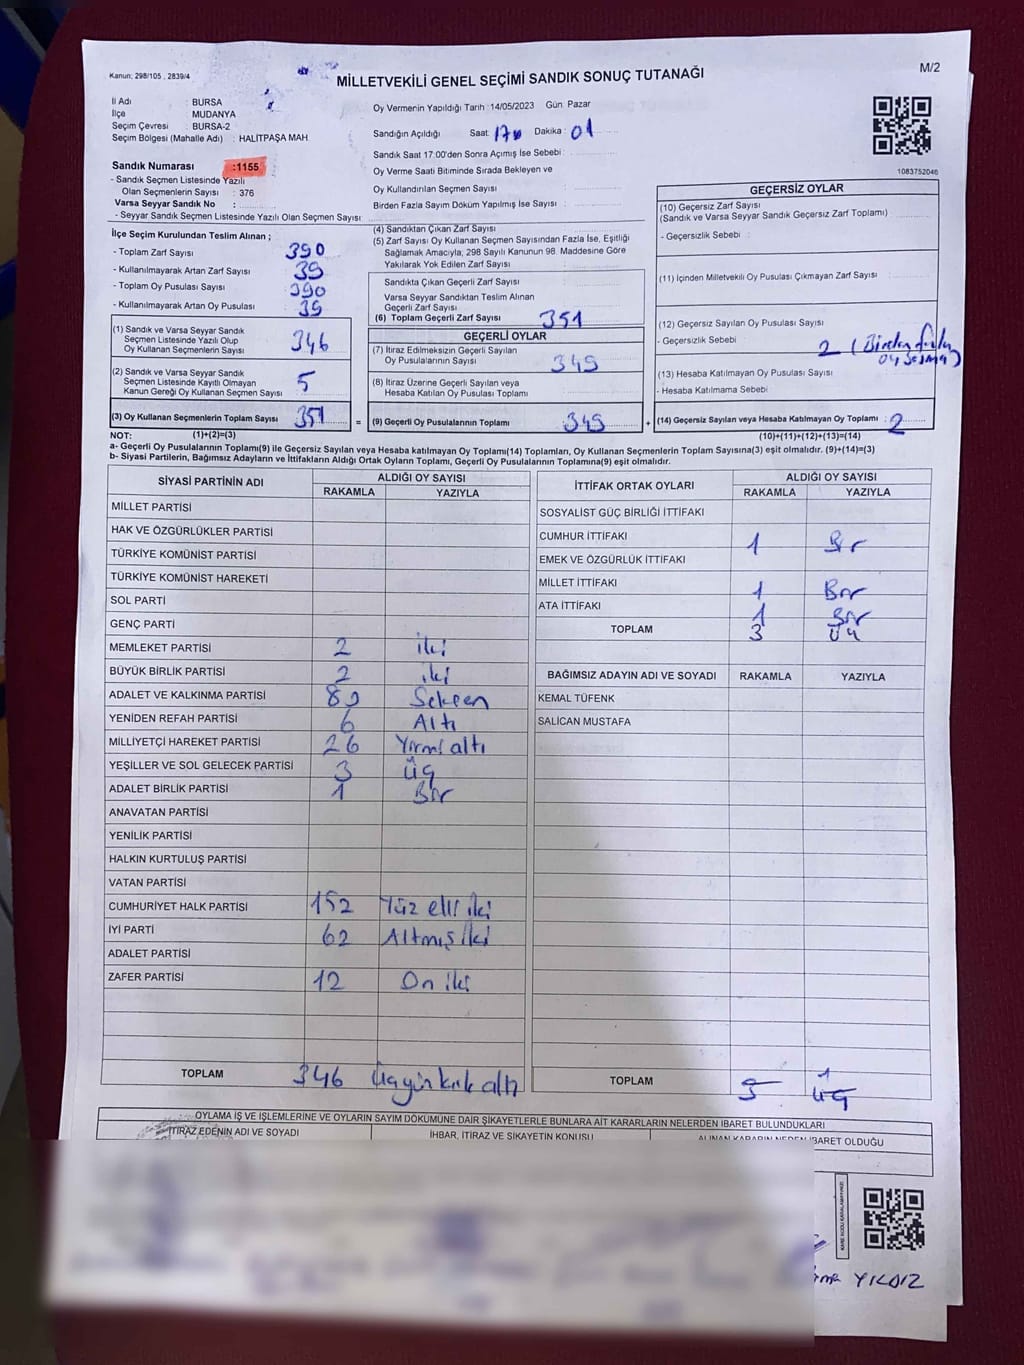 Kanun; 298/105 , 2839/4
MİLLETVEKİLİ GENEL SEÇİMİ SANDIK SONUÇ TUTANAĞI
M/2
İl Adı : BURSA
İlçe : MUDANYA
Seçim Çevresi : BURSA-2
Seçim Bölgesi (Mahalle Adı) : HALİTPAŞA MAH
Sandık Numarası :1155
- Sandık Seçmen Listesinde Yazılı
Olan Seçmenlerin Sayısı : 376
Varsa Seyyar Sandık No :
- Seyyar Sandık Seçmen Listesinde Yazılı Olan Seçmen Sayısı
Oy Vermenin Yapıldığı Tarih :14/05/2023 Gün: Pazar
Sandığın Açıldığı Saat: 17 Dakika : 01
Sandık Saat 17:00'den Sonra Açımış İse Sebebi :
Oy Verme Saati Bitiminde Sırada Bekleyen ve
Oy Kullandırılan Seçmen Sayısı :
Birden Fazla Sayım Döküm Yapılmış İse Sayısı :
1083752046
İlçe Seçim Kurulundan Teslim Alınan ;
- Toplam Zarf Sayısı : 390
- Kullanılmayarak Artan Zarf Sayısı : 39
- Toplam Oy Pusulası Sayısı : 390
- Kullanılmayarak Artan Oy Pusulası : 39
(1) Sandık ve Varsa Seyyar Sandık
Seçmen Listesinde Yazılı Olup
Oy Kullanan Seçmenlerin Sayısı : 346
(2) Sandık ve Varsa Seyyar Sandık
Seçmen Listesinde Kayıtlı Olmayan
Kanun Gereği Oy Kullanan Seçmen Sayısı : 5
(3) Oy Kullanan Seçmenlerin Toplam Sayısı : 351
(4) Sandıktan Çıkan Zarf Sayısı :
(5) Zarf Sayısı Oy Kullanan Seçmen Sayısından Fazla İse, Eşitliği
Sağlamak Amacıyla, 298 Sayılı Kanunun 98. Maddesine Göre
Yakılarak Yok Edilen Zarf Sayısı :
Sandıkta Çıkan Geçerli Zarf Sayısı :
Varsa Seyyar Sandıktan Teslim Alınan
Geçerli Zarf Sayısı :
(6) Toplam Geçerli Zarf Sayısı : 351
GEÇERLİ OYLAR
(7) İtiraz Edilmeksizin Geçerli Sayılan
Oy Pusulalarının Sayısı : 349
(8) İtiraz Üzerine Geçerli Sayılan veya
Hesaba Katılan Oy Pusulaları Toplamı :
= (9) Geçerli Oy Pusulalarının Toplamı : 349 +
GEÇERSİZ OYLAR
(10) Geçersiz Zarf Sayısı
(Sandık ve Varsa Seyyar Sandık Geçersiz Zarf Toplamı) :
- Geçersizlik Sebebi :
(11) İçinden Milletvekili Oy Pusulası Çıkmayan Zarf Sayısı :
(12) Geçersiz Sayılan Oy Pusulası Sayısı :
- Geçersizlik Sebebi : 2 (Birden fazla
oy basma)
(13) Hesaba Katılmayan Oy Pusulası Sayısı :
- Hesaba Katılmama Sebebi :
(14) Geçersiz Sayılan veya Hesaba Katılmayan Oy Toplamı : 2
NOT: (1)+(2)=(3)
(10)+(11)+(12)+(13)=(14)
a- Geçerli Oy Pusulalarının Toplamı(9) ile Geçersiz Sayılan veya Hesaba katılmayan Oy Toplamı(14) Toplamları, Oy Kullanan Seçmenlerin Toplam Sayısına(3) eşit olmalıdır. (9)+(14)=(3)
b- Siyasi Partilerin, Bağımsız Adayların ve İttifakların Aldığı Ortak Oyların Toplamı, Geçerli Oy Pusulalarının Toplamına(9) eşit olmalıdır.
SİYASİ PARTİNİN ADI ALDIĞI OY SAYISI
RAKAMLA YAZIYLA
MİLLET PARTİSİ
HAK VE ÖZGÜRLÜKLER PARTİSİ
TÜRKİYE KOMÜNİST PARTİSİ
TÜRKİYE KOMÜNİST HAREKETİ
SOL PARTİ
GENÇ PARTİ
MEMLEKET PARTİSİ 2 iki
BÜYÜK BİRLİK PARTİSİ 2 iki
ADALET VE KALKINMA PARTİSİ 80 Seksen
YENİDEN REFAH PARTİSİ 6 Altı
MİLLİYETÇİ HAREKET PARTİSİ 26 Yirmi altı
YEŞİLLER VE SOL GELECEK PARTİSİ 3 Üç
ADALET BİRLİK PARTİSİ 1 Bir
ANAVATAN PARTİSİ
YENİLİK PARTİSİ
HALKIN KURTULUŞ PARTİSİ
VATAN PARTİSİ
CUMHURİYET HALK PARTİSİ 152 Yüz elli iki
İYİ PARTİ 62 Altmış iki
ADALET PARTİSİ
ZAFER PARTİSİ 12 On iki
TOPLAM 346 Üçyüz kırk altı
İTTİFAK ORTAK OYLARI ALDIĞI OY SAYISI
RAKAMLA YAZIYLA
SOSYALİST GÜÇ BİRLİĞİ İTTİFAKI
CUMHUR İTTİFAKI 1 Bir
EMEK VE ÖZGÜRLÜK İTTİFAKI
MİLLET İTTİFAKI 1 Bir
ATA İTTİFAKI 1 Bir
TOPLAM 3 Üç
BAĞIMSIZ ADAYIN ADI VE SOYADI RAKAMLA YAZIYLA
KEMAL TÜFENK
SALİCAN MUSTAFA
TOPLAM 3 Üç
OYLAMA İŞ VE İŞLEMLERİNE VE OYLARIN SAYIM DÖKÜMÜNE DAİR ŞİKAYETLERLE BUNLARA AİT KARARLARIN NELERDEN İBARET BULUNDUKLARI
İTİRAZ EDENİN ADI VE SOYADI İHBAR, İTİRAZ VE ŞİKAYETİN KONUSU ALINAN KARARIN NEDEN İBARET OLDUĞU
YILDIZ